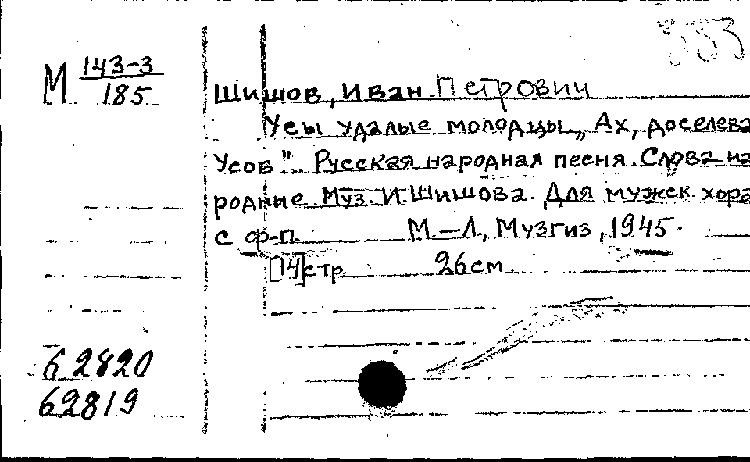 353
М 143-3
185
Шишов, Иван Петрович
Усы удалые молодцы „Ах, доселева
Усов". Русская народная песня. Слова на
родные. Муз. И. Шишова. Для мужск. хора
с ф-п. М.-Л., Музгиз, 1945.
[14]стр. 26см.
62820
62819